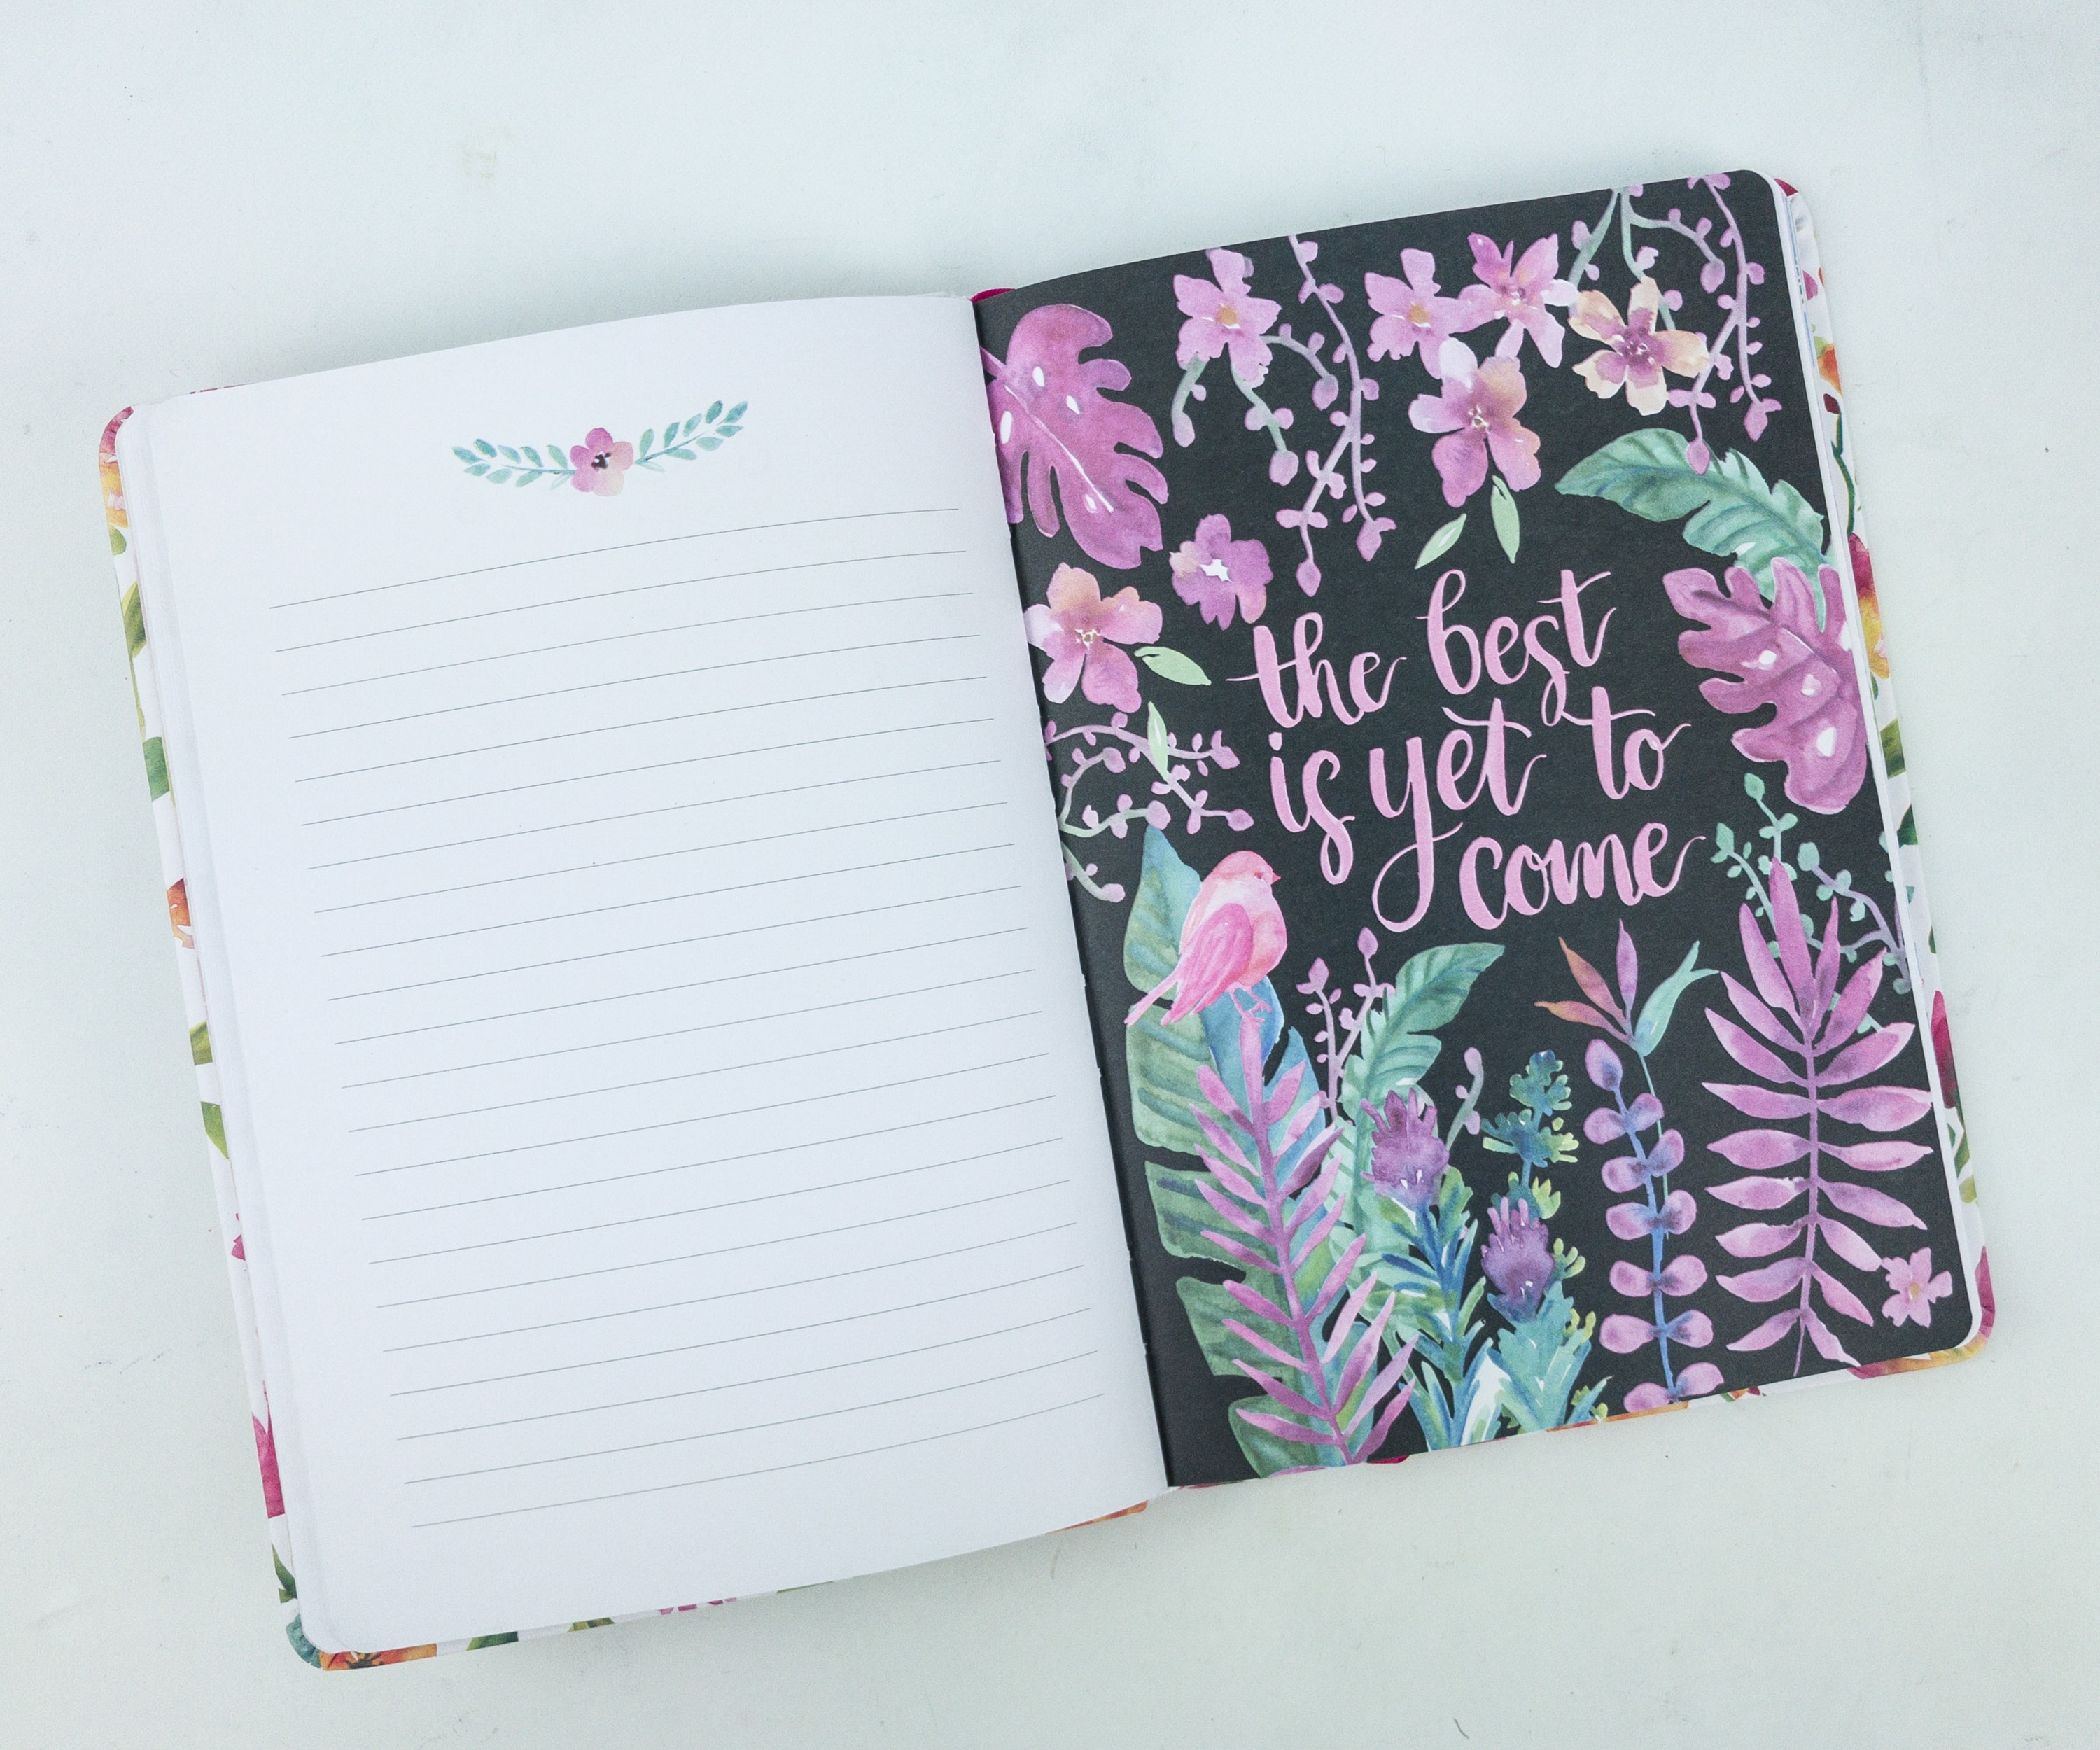 the best
is yet to
come